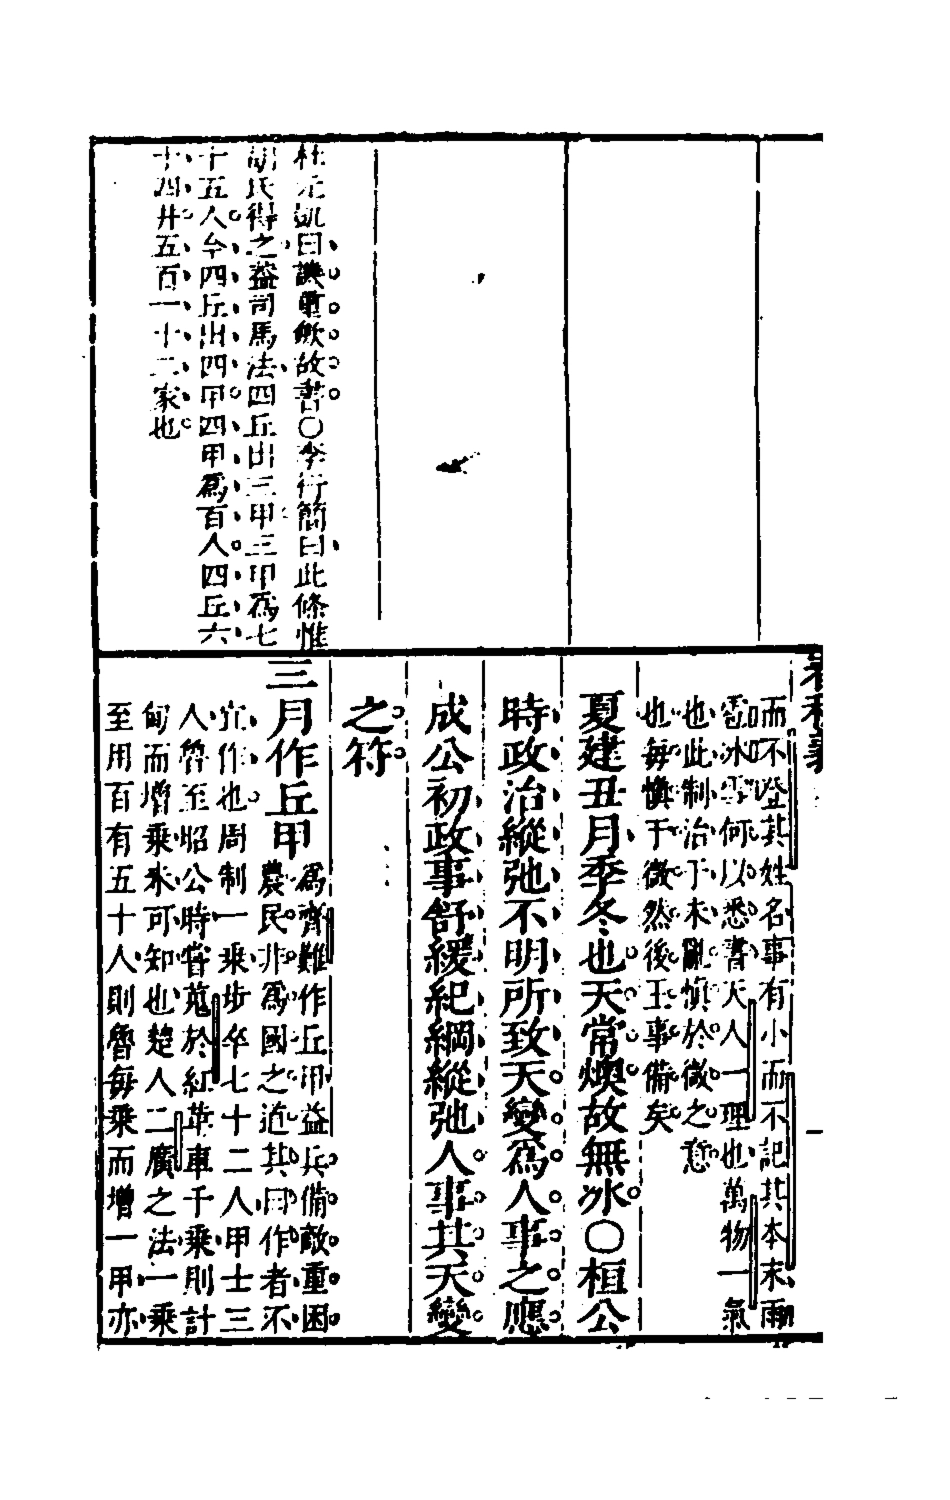 杜元凱曰譏重斂故書○李行簡曰此條惟
胡氏得之益司馬法四丘出三甲三甲爲七
十五人今四丘出四甲四甲爲百人四丘六
十四井五百一十二家也
而不登其姓名事有小而不記其本末雨
雹冰雪何以悉書天人一理也萬物一氣
也此制治于未亂慎於微之意
也每慎于微然後王事備矣
夏建丑月季冬也天常燠故無冰○桓公
時政治縱弛不明所致天變爲人事之應
成公初政事舒緩紀綱縱弛人事其天變
之符
三月作丘甲
爲齊難作丘甲益兵備敵重困
農民非爲國之道其曰作者不
宜作也周制一乘步卒七十二人甲士三
人魯至昭公時嘗蒐於紅革車千乘則計
甸而增乘未可知也楚人二廣之法一乘
至用百有五十人則魯每乘而增一甲亦